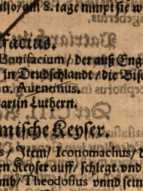 am 8. tage nimpt sie w
factius.
Bonifacium / der auß Eng
in Deudschlandt / die Bis
n. Auentinus.
artin Luthern.
mische Keyser.
s / Item / Iconomachus / d
en Keyser auff / schlegt vnd
and / Theodosius vnnd sein